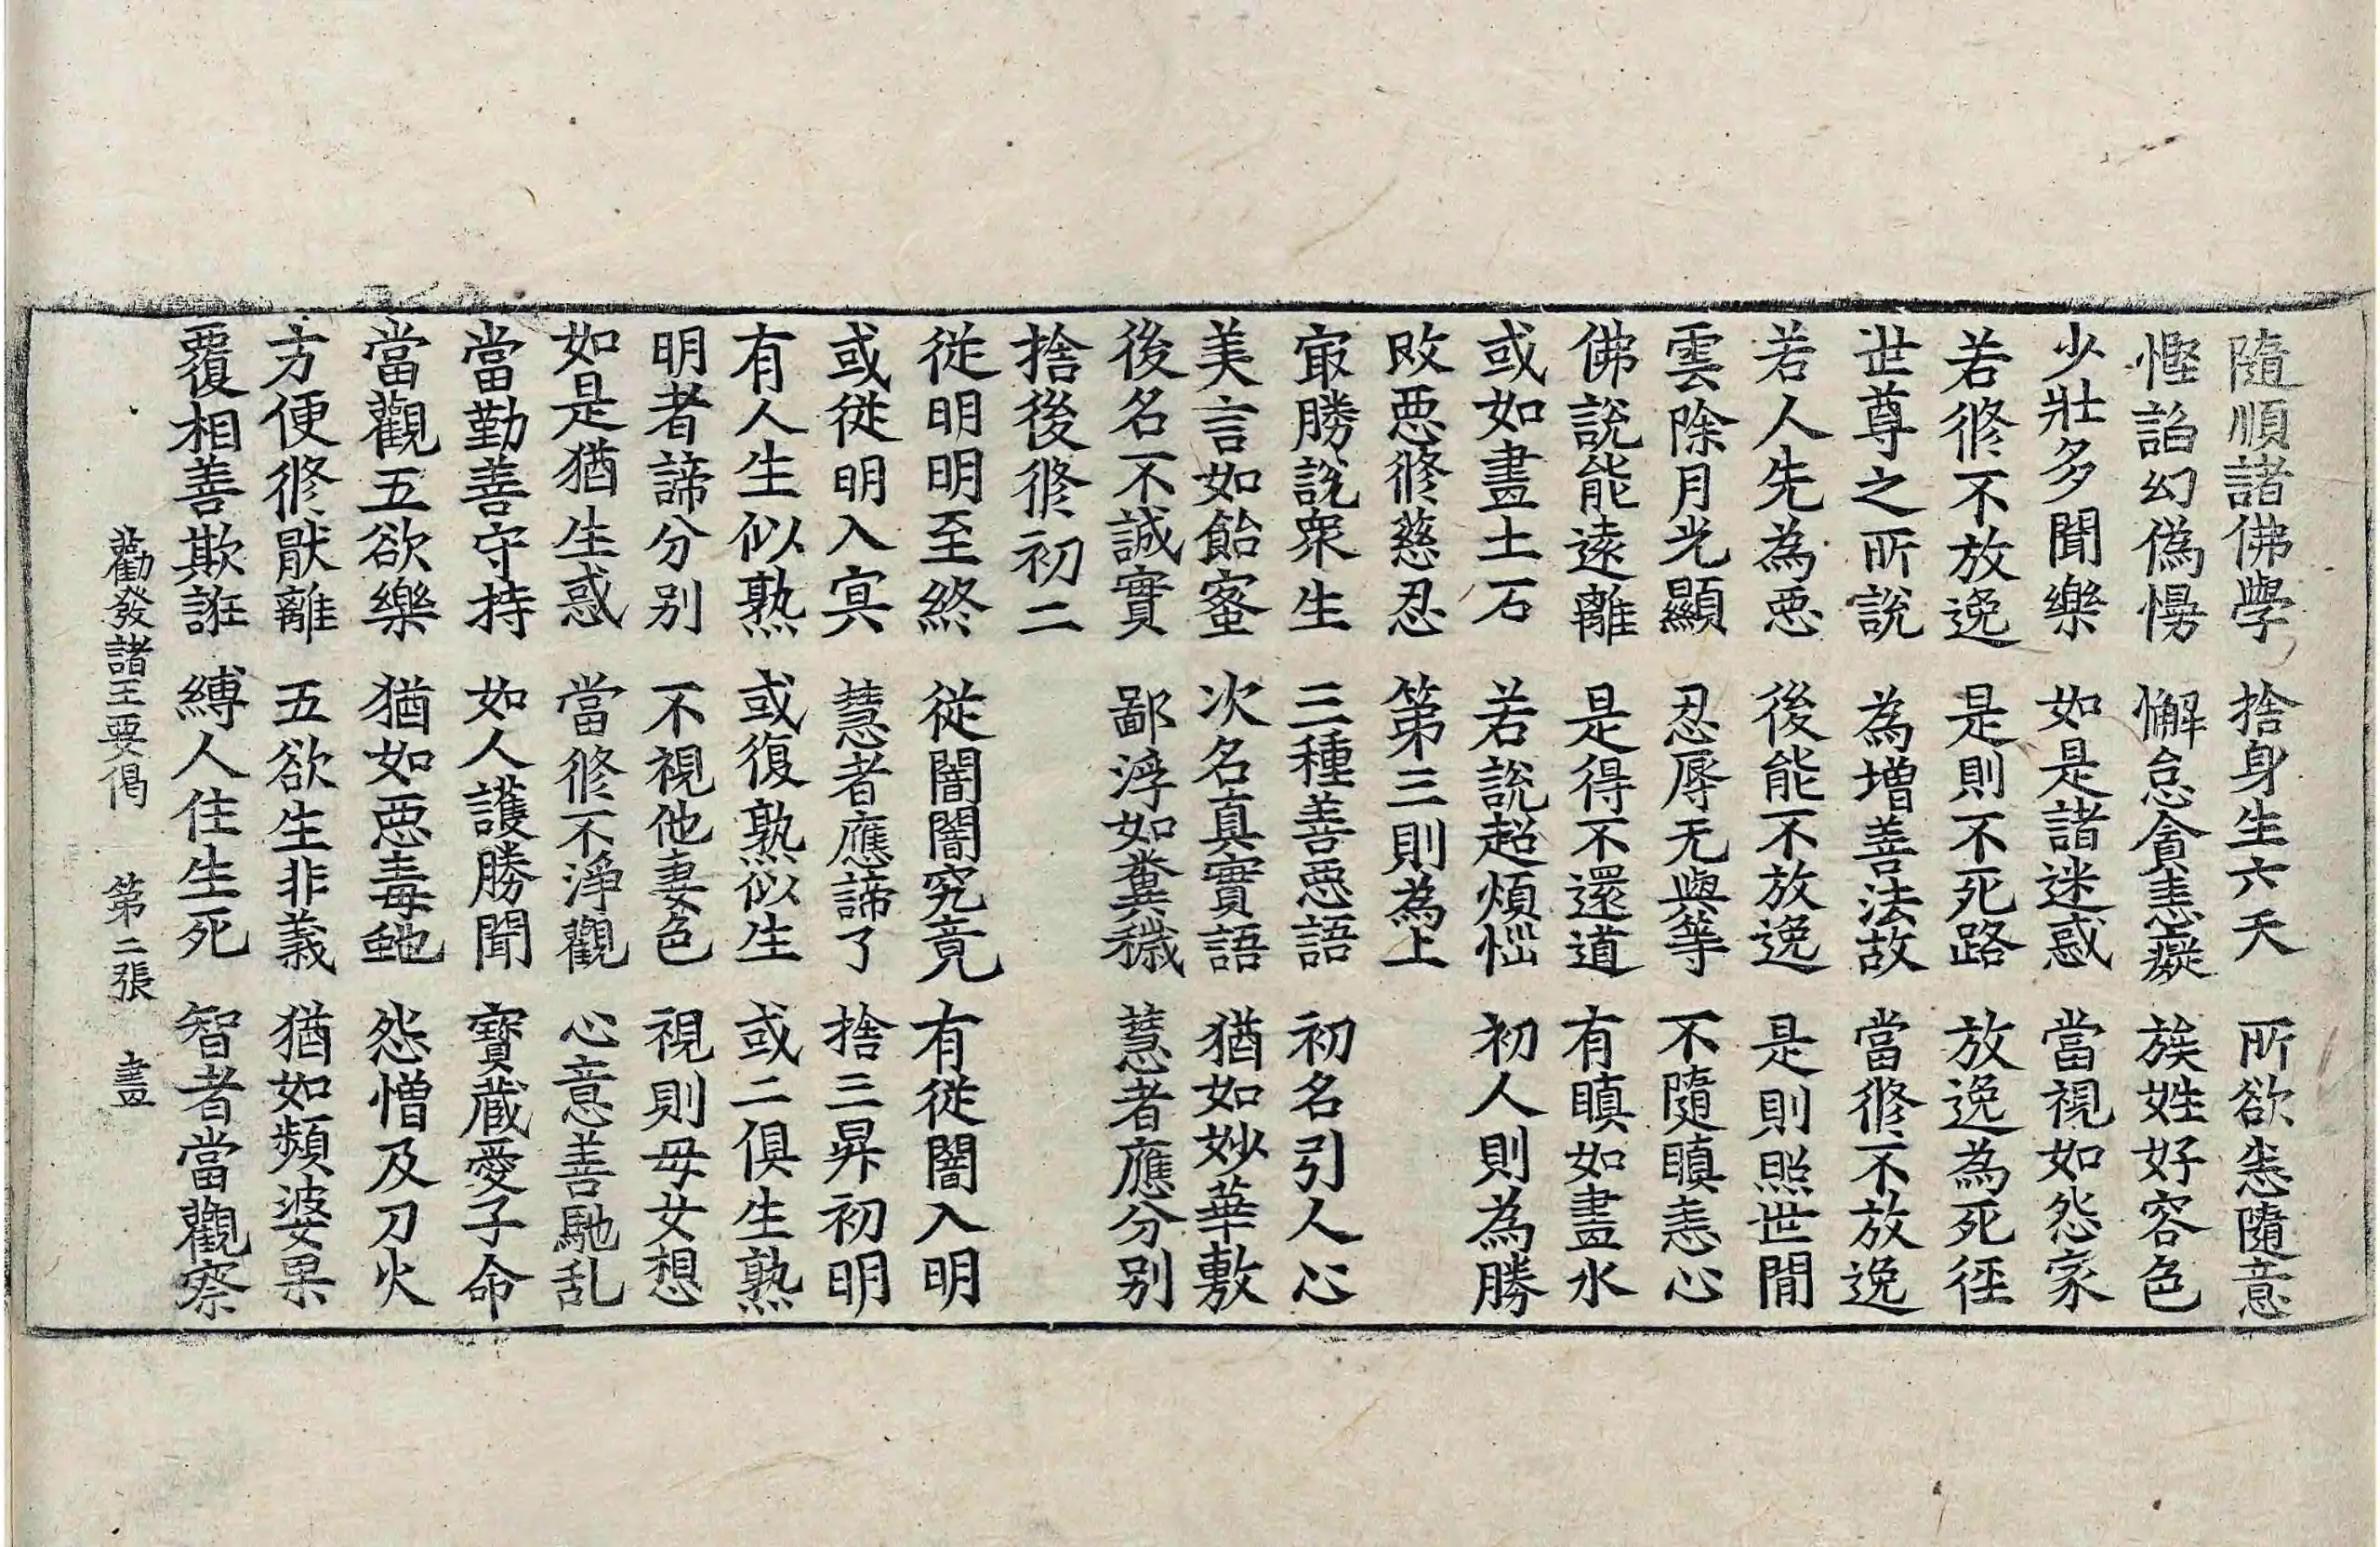 隨順諸佛學 捨身生六天 所欲恣隨意
慳諂幻偽慢 懈怠貪恚癡 族姓好容色
少壯多聞樂 如是諸迷惑 當視如怨家
若修不放逸 是則不死路 放逸為死徑
世尊之所說 為增善法故 當修不放逸
若人先為惡 後能不放逸 是則照世間
雲除月光顯 忍辱无與等 不隨瞋恚心
佛說能遠離 是得不還道 有瞋如畫水
或如畫土石 若說超煩惱 初人則為勝
敗惡修慈忍 第三則為上
最勝說衆生 三種善惡語 初名引人心
美言如飴蜜 次名真實語 猶如妙華敷
後名不誠實 鄙浮如糞穢 慧者應分别
捨後修初二
從明明至終 從闇闇究竟 有從闇入明
或從明入冥 慧者應諦了 捨三昇初明
有人生似熟 或復熟似生 或二俱生熟
明者諦分别 不視他妻色 視則母女想
如是猶生惑 當修不淨觀 心意善馳乱
當勤善守持 如人護勝聞 寶蔵愛子命
當觀五欲樂 猶如惡毒虵 怨憎及刀火
方便修猒離 五欲生非義 猶如頻婆果
覆相善欺誑 縛人住生死 智者當觀察
勸發諸王要偈 第二張 晝